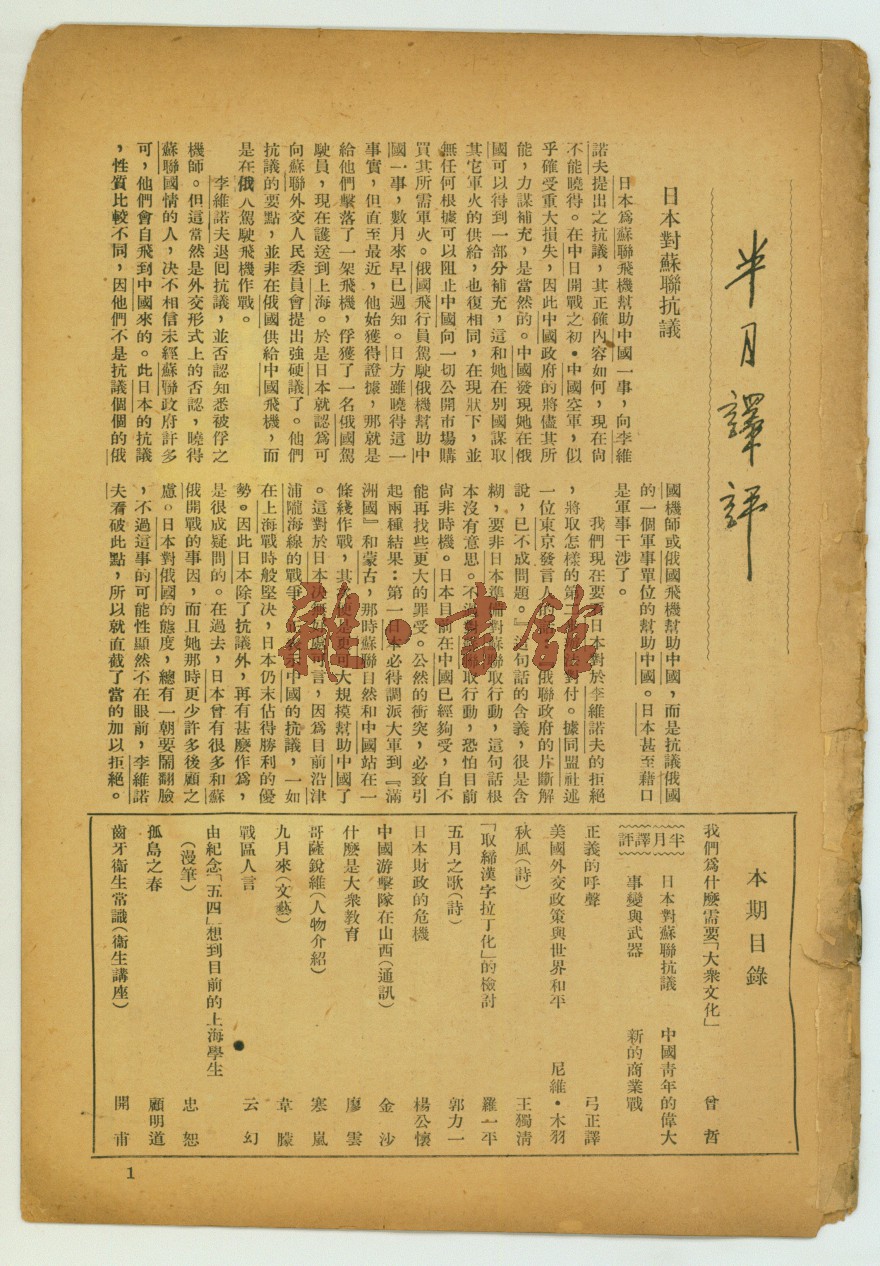 半月譯評
日本對蘇聯抗議
日本爲蘇聯飛機幫助中國一事，向李維
諾夫提出之抗議，其正確內容如何，現在尙
不能曉得。在中日開戰之初・中國空軍，似
乎確受重大損失，因此中國政府的將儘其所
能，力謀補充，是當然的。中國發現她在俄
國可以得到一部分補充，這和她在別國謀取
其它軍火的供給，也復相同，在現狀下，並
無任何根據可以阻止中國向一切公開市場購
買其所需軍火。俄國飛行員駕駛俄機幫助中
國一事，數月來早已週知。日方雖曉得這一
事實，但直至最近，他始獲得證據，那就是
給他們擊落了一架飛機，俘獲了一名俄國駕
駛員，現在護送到上海。於是日本就認爲可
向蘇聯外交人民委員會提出強硬議了。他們
抗議的要點，並非在俄國供給中國飛機，而
是在俄人駕駛飛機作戰。
李維諾夫退囘抗議，並否認知悉被俘之
機師。但這當然是外交形式上的否認，曉得
蘇聯國情的人，決不相信未經蘇聯政府許多
可，他們會自飛到中國來的。此日本的抗議
，性質比較不同，因他們不是抗議個個的俄
國機師或俄國飛機幫助中國，而是抗議俄國
的一個軍事單位的幫助中國。日本甚至藉口
是軍事干涉了。
我們現在要看日本對於李維諾夫的拒絕
，將取怎樣的第二付。據同盟社述
一位東京發言人的俄聯政府的片斷解
說，已不成問題。』這句話的含義，很是含
糊，要非日本準備對蘇聯取行動，這句話根
本沒有意思。不過對蘇聯取行動，恐怕目前
尙非時機。日本目前在中國已經夠受，自不
能再找些更大的罪受。公然的衝突，必致引
起兩種結果：第一日本必得調派大軍到『滿
洲國』和蒙古，那時蘇聯自然和中國站在一
條綫作戰，其更可大規模幫助中國了
。這對於日本決無好處可言，因爲目前沿津
浦隴海線的戰爭，表示中國的抗議，一如
在上海戰時般堅決，日本仍末佔得勝利的優
勢。因此日本除了抗議外，再有甚麼作爲，
是很成疑問的。在過去，日本曾有很多和蘇
俄開戰的事因，而且她那時更少許多後顧之
慮。日本對俄國的態度，總有一朝要鬧翻臉
，不過這事的可能性顯然不在眼前，李維諾
夫看破此點，所以就直截了當的加以拒絕。
本期目錄
我們爲什麼需要「大衆文化」 曾哲
半月譯評
日本對蘇聯抗議 中國靑年的偉大
事變與武器 新的商業戰
正義的呼聲 弓正譯
美國外交政策與世界和平 尼維・木羽
秋風(詩) 王獨淸
「取締漢字拉丁化」的檢討 羅一平
五月之歌(詩) 郭力一
日本財政的危機 楊公懷
中國游擊隊在山西(通訊) 金沙
什麼是大衆敎育 廖雲
哥薩銳維(人物介紹) 寒嵐
九月來(文藝) 韋朦
戰區人言 云幻
由紀念「五四」想到目前的上海學生
(漫筆) 忠恕
孤島之春 顧明道
齒牙衞生常識(衞生講座) 開甫
1